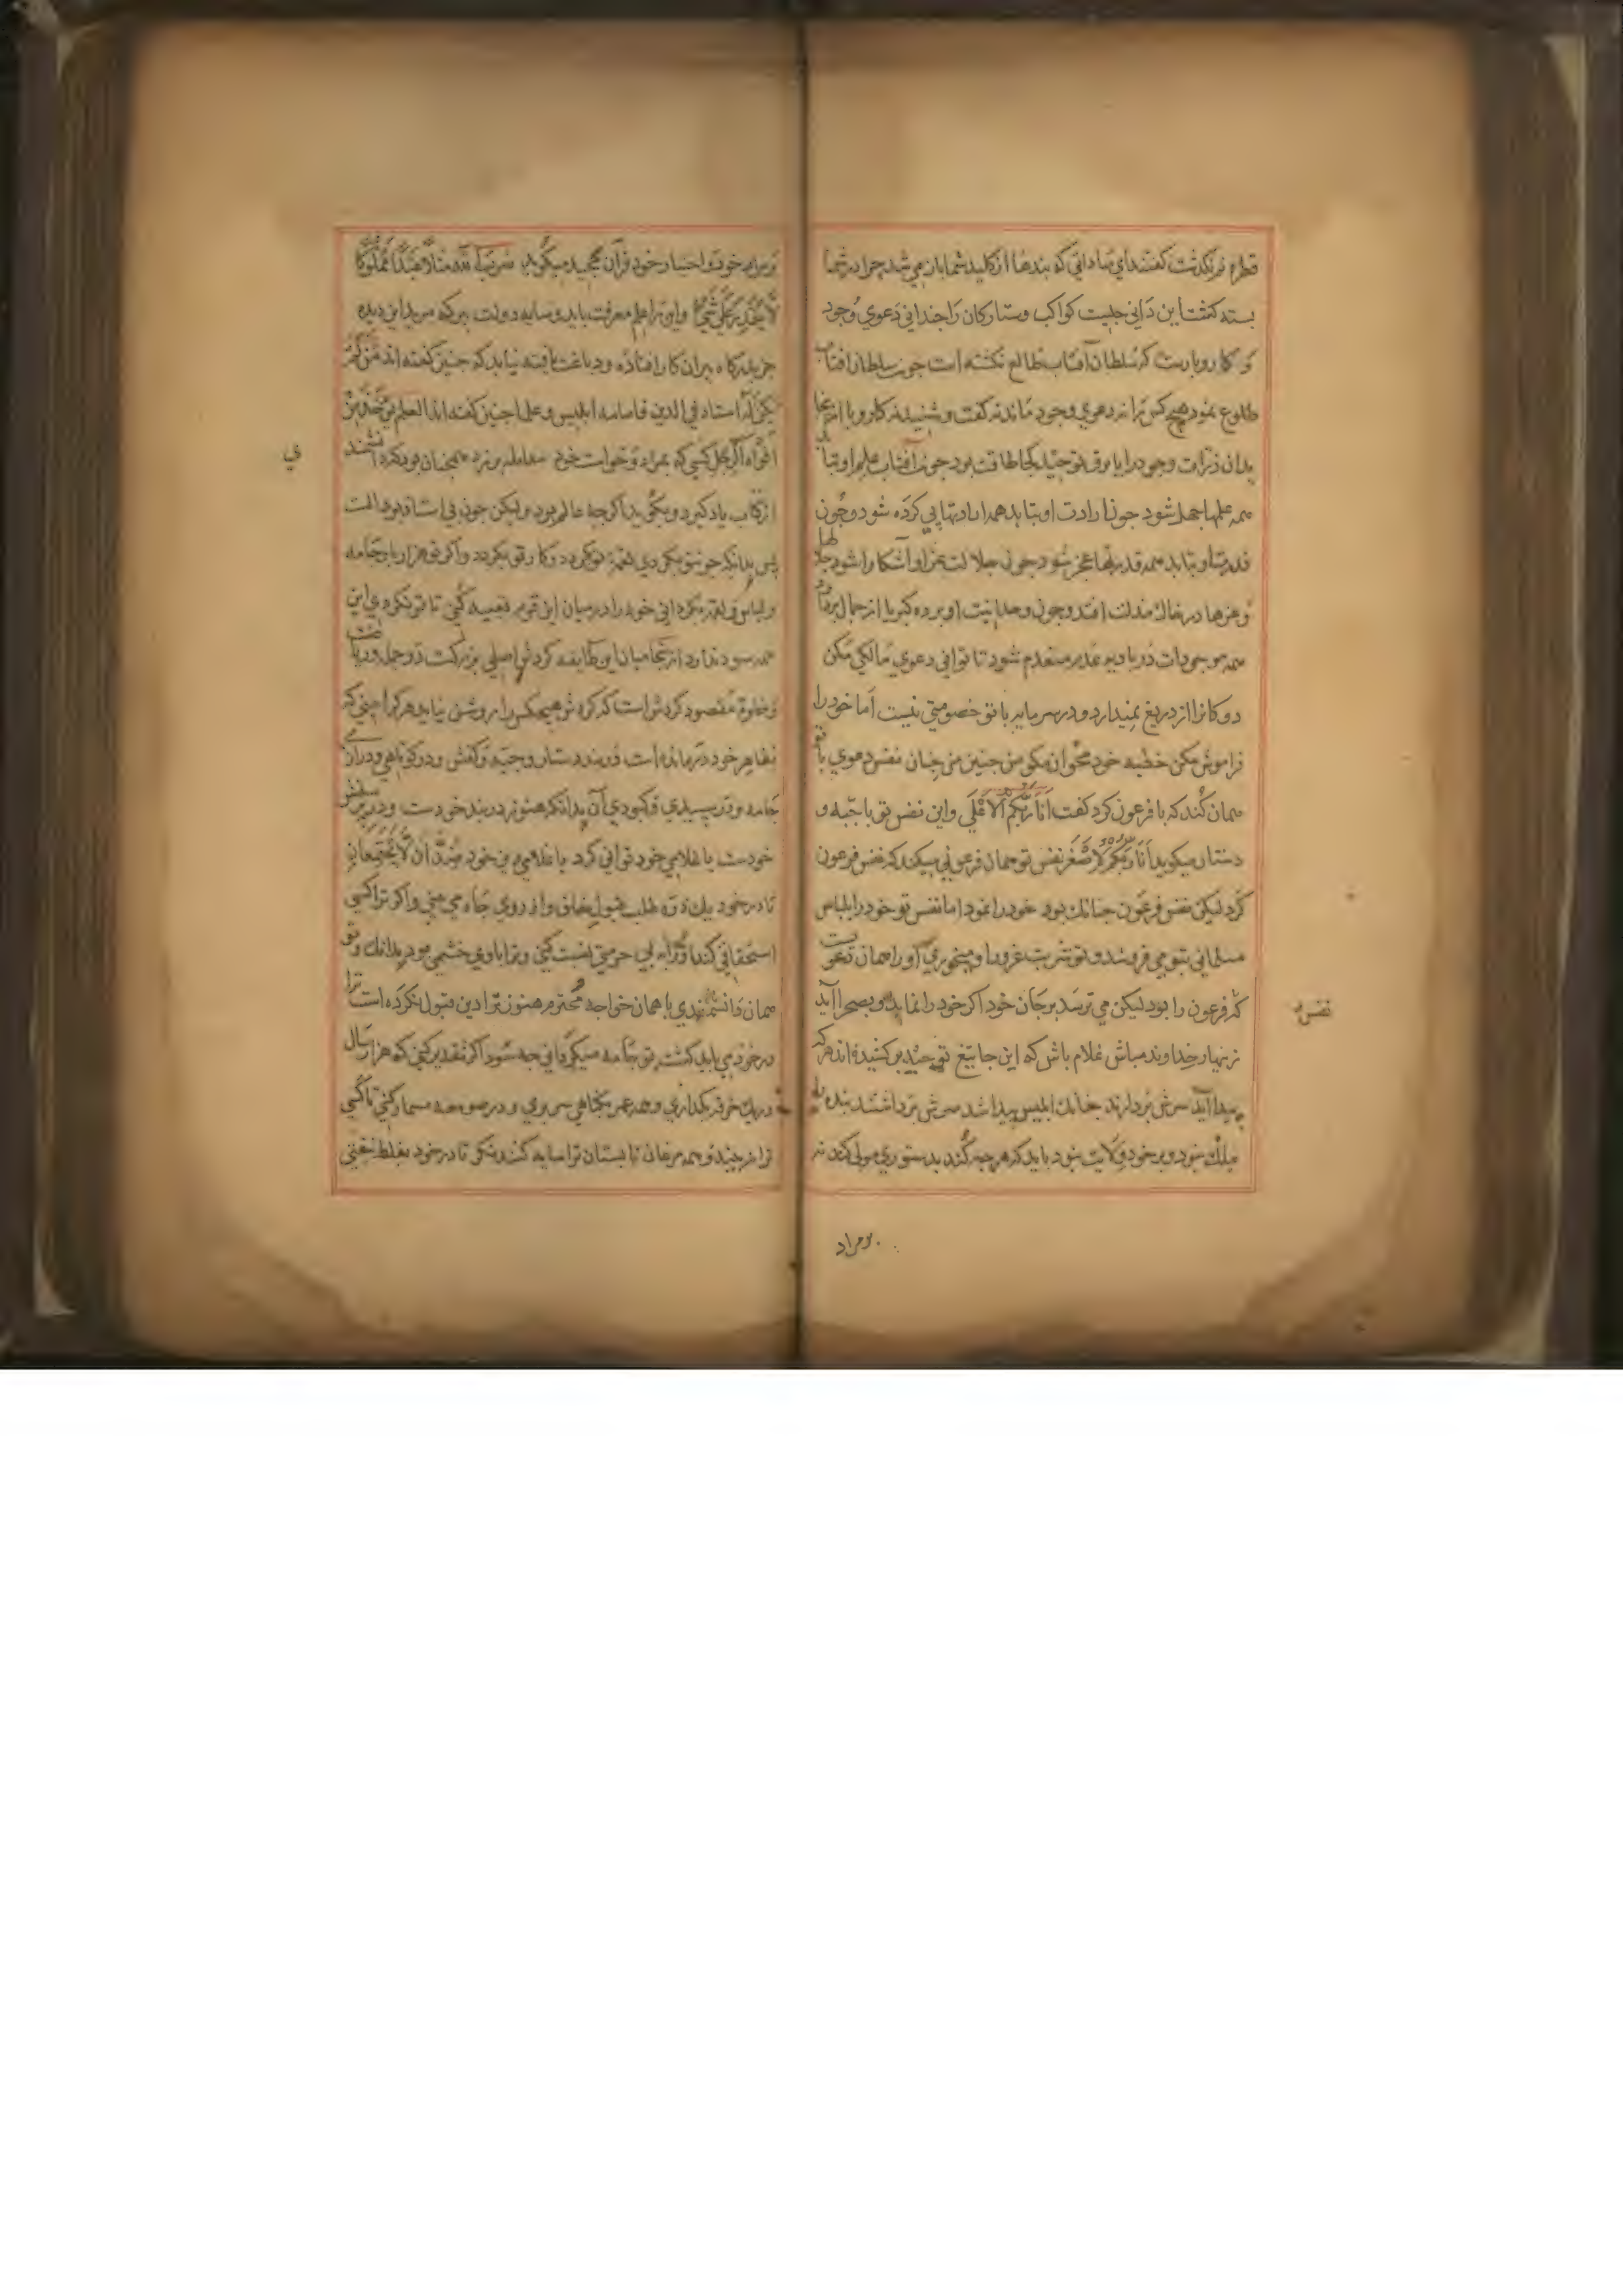 قطره نرنکدشت کفتند ای که بندها از کلید شما باز می شد چرا در شما
بسته کشت این دانی چیست کواکب و ستارکان را چندانی دعوی وجود
و کار و بارست که سلطان آفتاب طالع نکشته است چون سلطان افتاب
طلوع نمود هیچ کس را نه دعوی وجود ماند نه کفت و شنید نه کار و بار انجا
بدان ذرات وجود را با برق توحید کجا طاقت بود چون آفتاب علم او بتابد
همه علمها جهل شود چون ارادت او بتابد همه ارادتها پی کرده شود و چون
قدرت او بتابد همه قدرتها عجز شود چون جلالت عز او آشکارا شود جلالها
و عزها در خاک مذلت افتد و چون وحدانیت او برده کبریا از جمال بردارد
همه موجودات در بادیه عدم منعدم شود تا توانی دعوی مالکی مکن
دو کانرا از دریغ نمیدارد و در سرمایه با تو خصومتی نیست اما خود را
فراموش مکن خطبه خود مخوان مکو من چنین من چنان نفس دعوی با تو
همان کند که با فرعون کرد کفت انا ربکم الاعلی و این نفس تو با جبه و
دستار میکوید انا ربکم الاصغر نفس تو همان فرعونی میکند که نفس فرعون
کرد لیکن نفس فرعون چنانک بود خود را نمود اما نفس تو خود را بلباس
مسلمانی بتو می فروشد و تو شربت غرور او میخوری او را همان دعویست
که فرعون را بود لیکن می ترسد بر جان خود اکر خود را نماید و بصحرا آید
زنهار خداوند مباش غلام باش که این جا تیغ توحید برکشیده اند هر که
پیدا آید سرش بردارند چنانک ابلیس پیدا شد سرش برداشتند بنده
ملک نبود و بر خود ولایت نبود باید که هر چه کند بدستوری مولی کند نه
نفس
بر مراد
بر مراد خود و اختیار خود قرآن مجید میکوید ضرب الله مثلا عبدا مملوکا
لا یقدر علی شیء و این را علم معرفت باید و سایه دولت پیر که مرید این دیده
جز بدرکاه پیران کار افتاده و دباغت یافته نیابد که چنین کفته اند من لم
یکن له استاد فی الدین فامامه ابلیس و علما چنین کفته اند العلم یوخذ من
افواه الرجال کسی که بمراد و خواست خود معامله برزد همچنان بود که دانشمند
از کتاب یاد کیرد و میکوید اکر چه عالم بود و لیکن چون بی استاد بود
پس بدانکه چون تو بکردی همه بکردد و کار تو بکردد و اکر تو هزار بار جامه
و لباس و لقمه بکردانی خود را در میان این قوم تعبیه کنی تا تو نکردی این
همه سود ندارد از انجا میان این طایفه کردش اصلی بزرکست
و خلوة مقصود کردش است که کردش هیچکس را روشن نیاید هر کرا بینی که
بظاهر خود درمانده است در بند دستار و جبه و کفش و در کوتاهی و درازی
جامه و در سپیدی و کبودی آن بدانکه هنوز در بند خودست و در پرستش
خودست یا غلامی خود توانی کرد یا غلامی دین خود ضدان لا یجتمعان
تا در خود یک ذره طلب قبول خلق و از روی جاه می بینی و اکر ترا کسی
استخفافی کند و ترا به بی حرمتی نسبت کنی و ترا با وی خشمی بود بدانک تو
همان دانشمندی یا همان خواجه محترم هنوز ترا دین قبول نکرده است ترا
در خود می باید کشت تو جامه میکردانی چه سود اکر تقدیر کنی که هزار سال
در یک خرقه بکذاری و همه عمر بکیاهی سر بری و در صومعه مسمار کنی تا کسی
ترا نبیند و همه مرغان تابستان ترا سایه کنند بنکر تا در خود بغلط نیفتی
فی